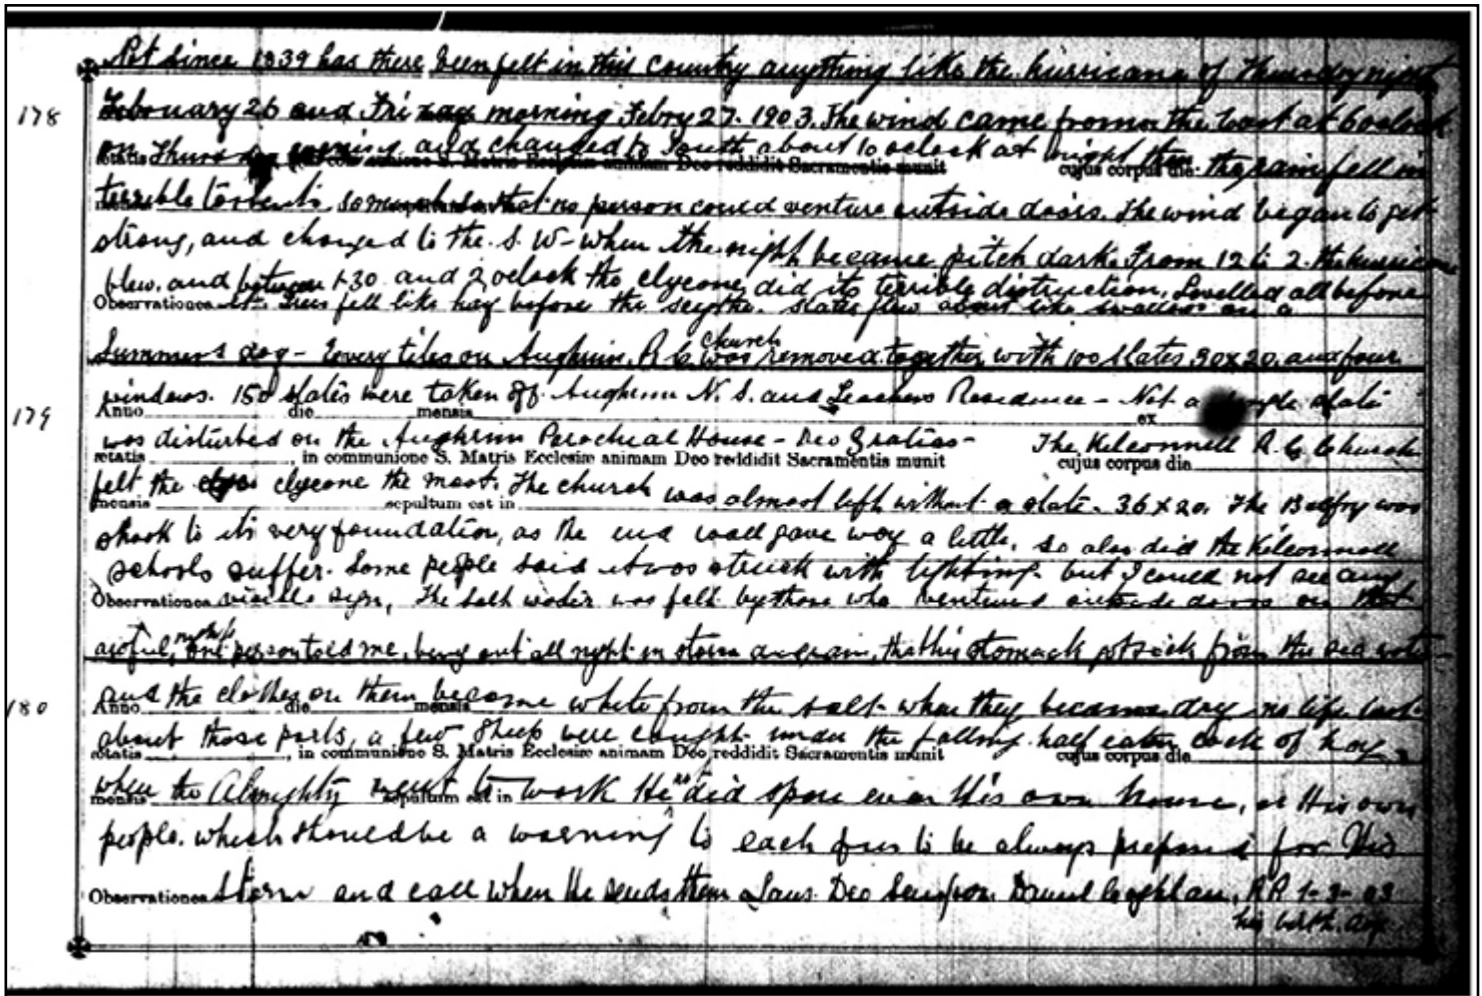 Not since 1839 has there been felt in this country anything like the hurricane of Thursday night
178
February 26 and Friday morning Febry 27. 1903. The wind came from the East at 6 oclock
on Thursday evening and changed to South about 10 oclock at night then the rain fell in
ætatis communione S. Matris Ecclesiæ animam Deo reddidit Sacramentis munit cujus corpus die
terrible torrents so much so that no person could venture outside doors. The wind began to get
strong, and changed to the S. W – when the night became pitch dark. From 12 to 2 the hurricane
blew. and between 1-30 and 2 oclock the clycone did its terrible distruction. Levelled all before
Observationes it. Trees fell like hay before the scythe. Slates flew about like swallows on a
Summers day – Every tiles on Aughrim R.C. church was removed together with 100 slates 30x20. and four
windows. 150 slates were taken off Aughrim N. S. and Teachers Residence – Not a single slate
179
Anno die mensis ex
was disturbed on the Aughrim Parochial House – Deo Gratias – The Kilconnell R. C. Church
ætatis , in communione S. Matris Ecclesiæ animam Deo reddidit Sacramentis munit cujus corpus die
felt the clycone the most. The church was almost left without a slate. 36 x 20. The Belfry was
mensis sepultum est in
shook to its very foundation, as the end wall gave way a little. so also did the Kilconnell
schools suffer. Some people said it was struck with lighting. but I could not see any
Observationes visible sign, The salt water was felt by those who ventured outside doors on that
awful night, one person told me, being out all night in storm and rain, that his stomack got sick from the sea water
and the clothes on them became white from the salt when they became dry – no life lost
180
Anno die mensis
about those parts, a few sheep were caught under the falling half eaten cock of hay
ætatis , in communione S. Matris Ecclesiæ animam Deo reddidit Sacramentis munit cujus corpus die
when the Almighty went to work He did spare even His own house, or His own
mensis sepultum est in
people. which should be a warning to each of us to be always prepared for His
Observationes Storm and call when He sends them Laus Deo Semper. Daniel Coghlan, PP 1-3-03
his birth day